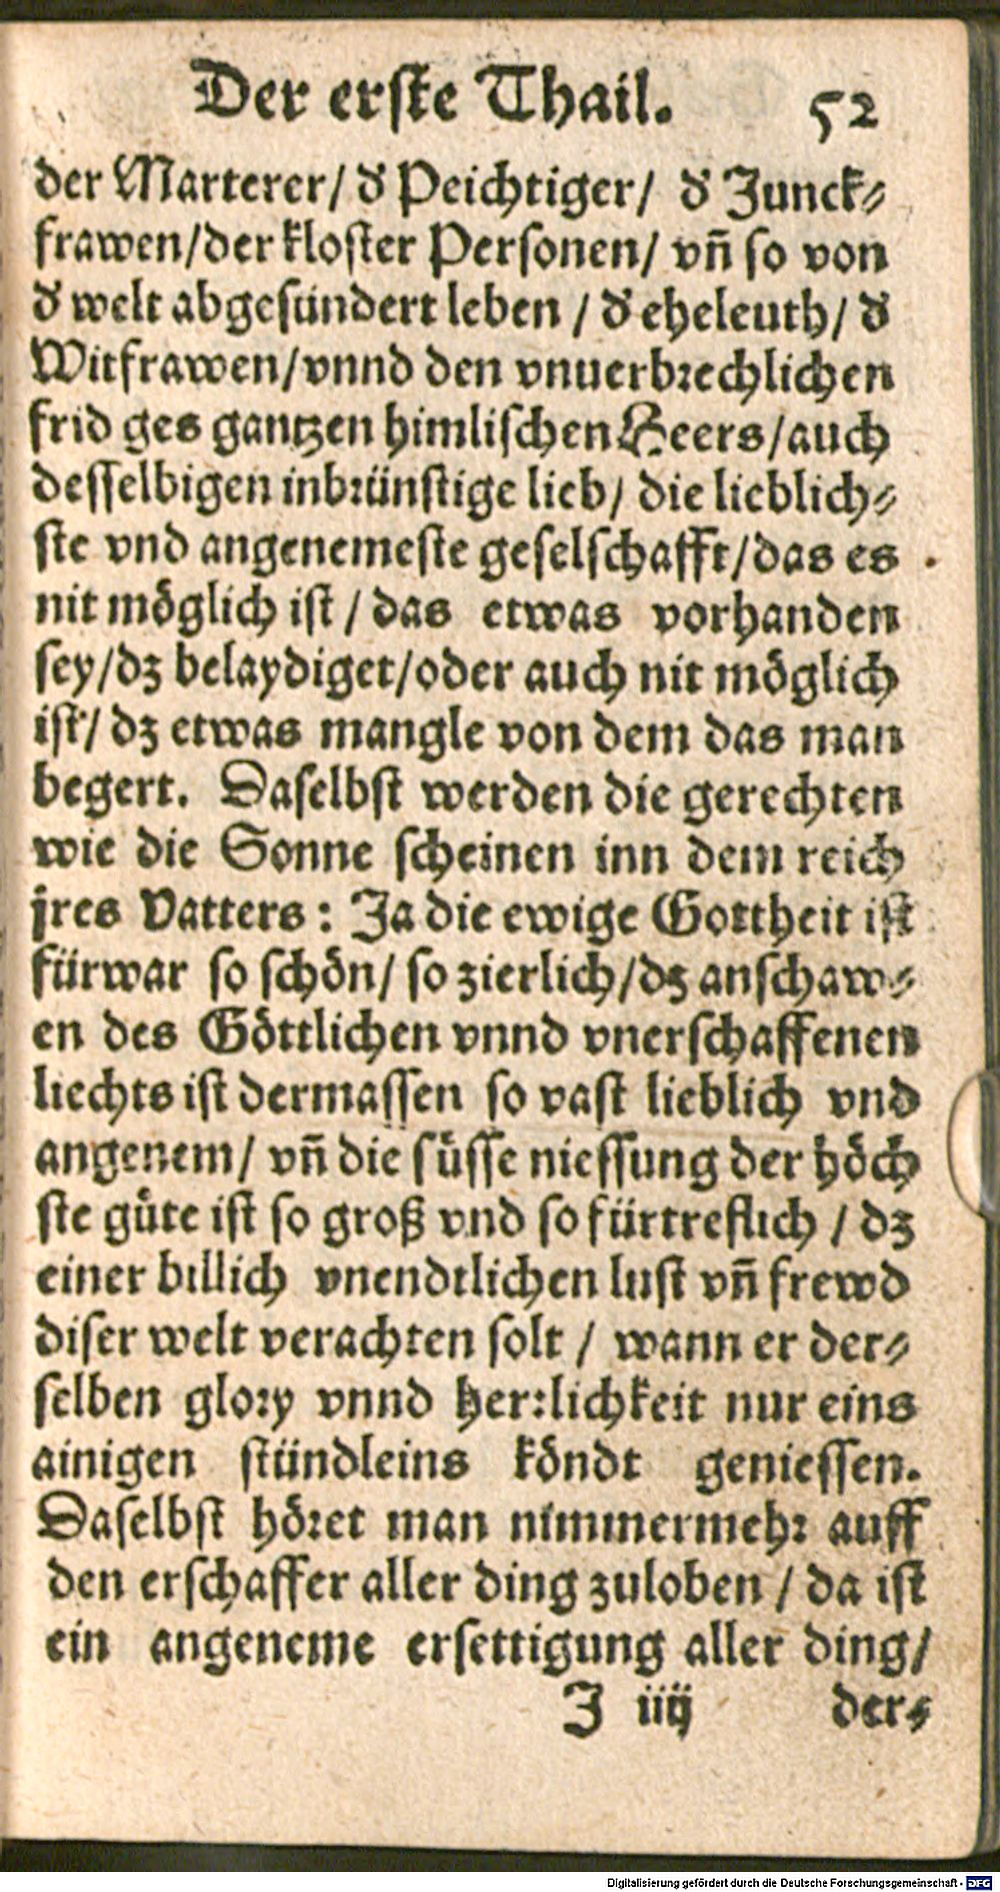 Der erste Thail. 52
der Marterer/ d' Peichtiger/ d' Junck⸗
frawen/der kloster Personen/ vñ so von
d' welt abgesündert leben / d' eheleuth/ d'
Witfrawen/vnnd den vnuerbrechlichen
frid ges gantzen himlischen Heers/auch
desselbigen inbrünstige lieb/ die lieblich⸗
ste vnd angenemeste geselschafft/das es
nit möglich ist / das etwas vorhanden
sey/dz belaydiget/oder auch nit möglich
ist/ dz etwas mangle von dem das man
begert. Daselbst werden die gerechten
wie die Sonne scheinen inn dem reich
jres Vatters: Ja die ewige Gottheit ist
fürwar so schön/ so zierlich/dz anschaw⸗
en des Göttlichen vnnd vnerschaffenen
liechts ist dermassen so vast lieblich vnd
angenem/ vñ die süsse niessung der höch
ste güte ist so groß vnd so fürtreflich / dz
einer billich vnendtlichen lust vñ frewd
diser welt verachten solt / wann er der⸗
selben glory vnnd herrlichkeit nur eins
ainigen stündleins köndt geniessen.
Daselbst höret man nimmermehr auff
den erschaffer aller ding zuloben / da ist
ein angeneme ersettigung aller ding/
J iiij der⸗
Digitalisierung gefördert durch die Deutsche Forschungsgemeinschaft - DFG